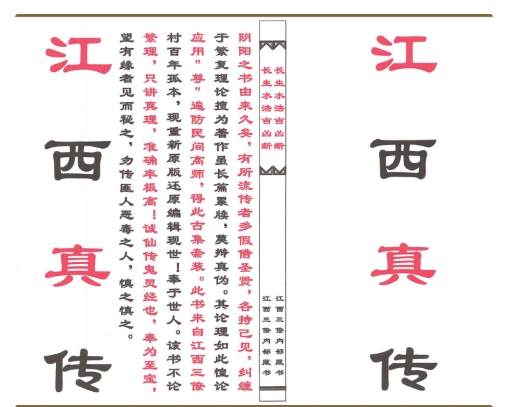 江西真传
长生水法吉凶断
江西三僚内部藏书
长生水法吉凶断
江西三僚内部藏书
阴阳之书由来久矣,有所流传者多假借圣贤,各持己见,纠缠
于繁复理论擅为著作虽长篇累牍,莫辩真伪。其论理如此惶论
应用"尊"遍防民间高师,得此古集套装。此书来自江西三僚
村百年孤本,现重新原版还原编辑现世!奉于世人。该书不论
繁理,只讲真理,准确率极高!诚仙传鬼灵经也,奉为至宝,
望有缘者见而秘之,勿传匪人恶毒之人,慎之慎之。
江西真传